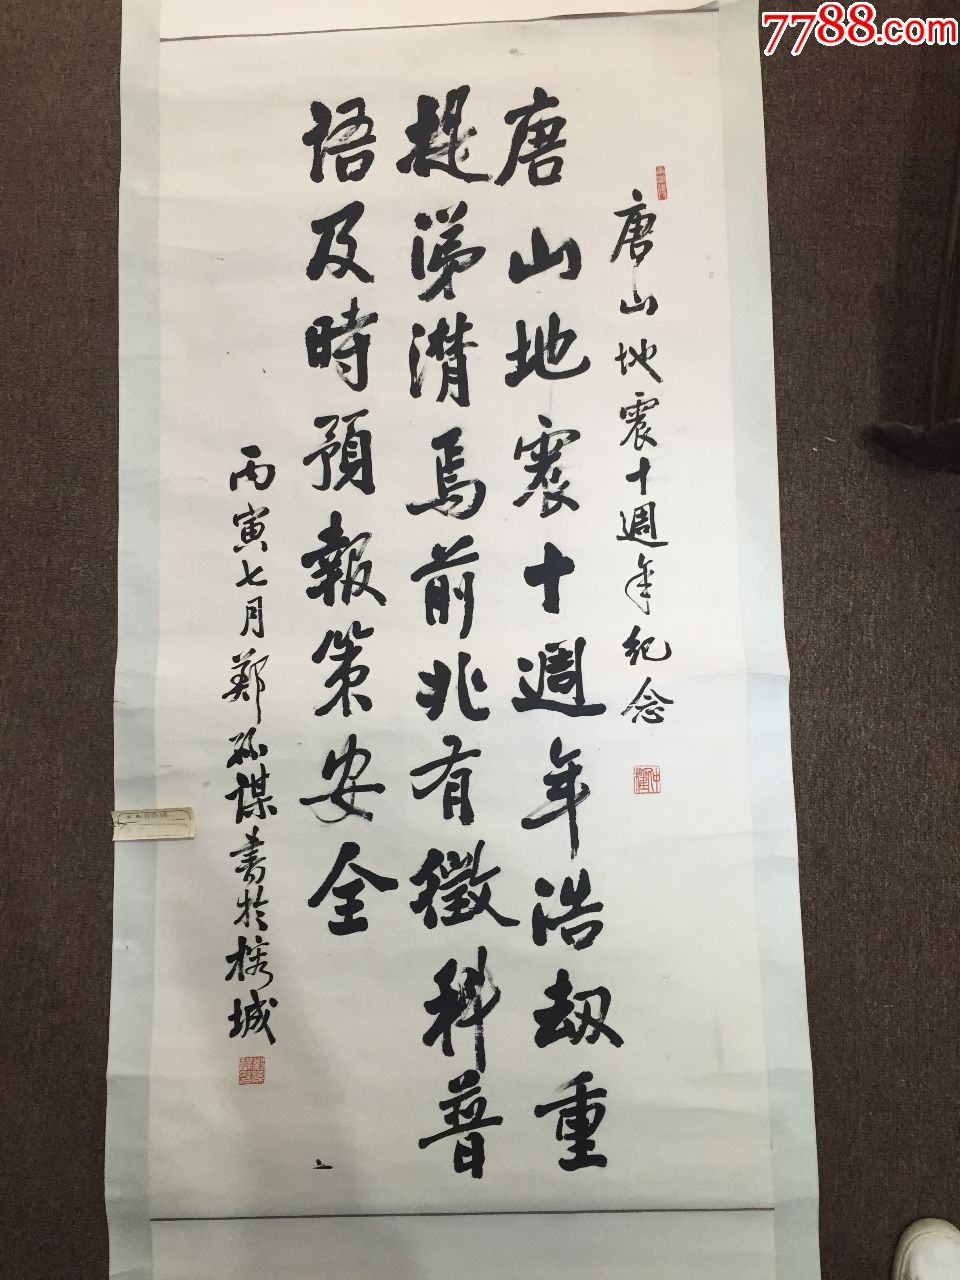 7788.com
唐山地震十週年紀念
唐山地震十週年浩劫重
提涕潸焉前兆有徵科普
語及時預報策安全
丙寅七月鄭孫謀書於榕城